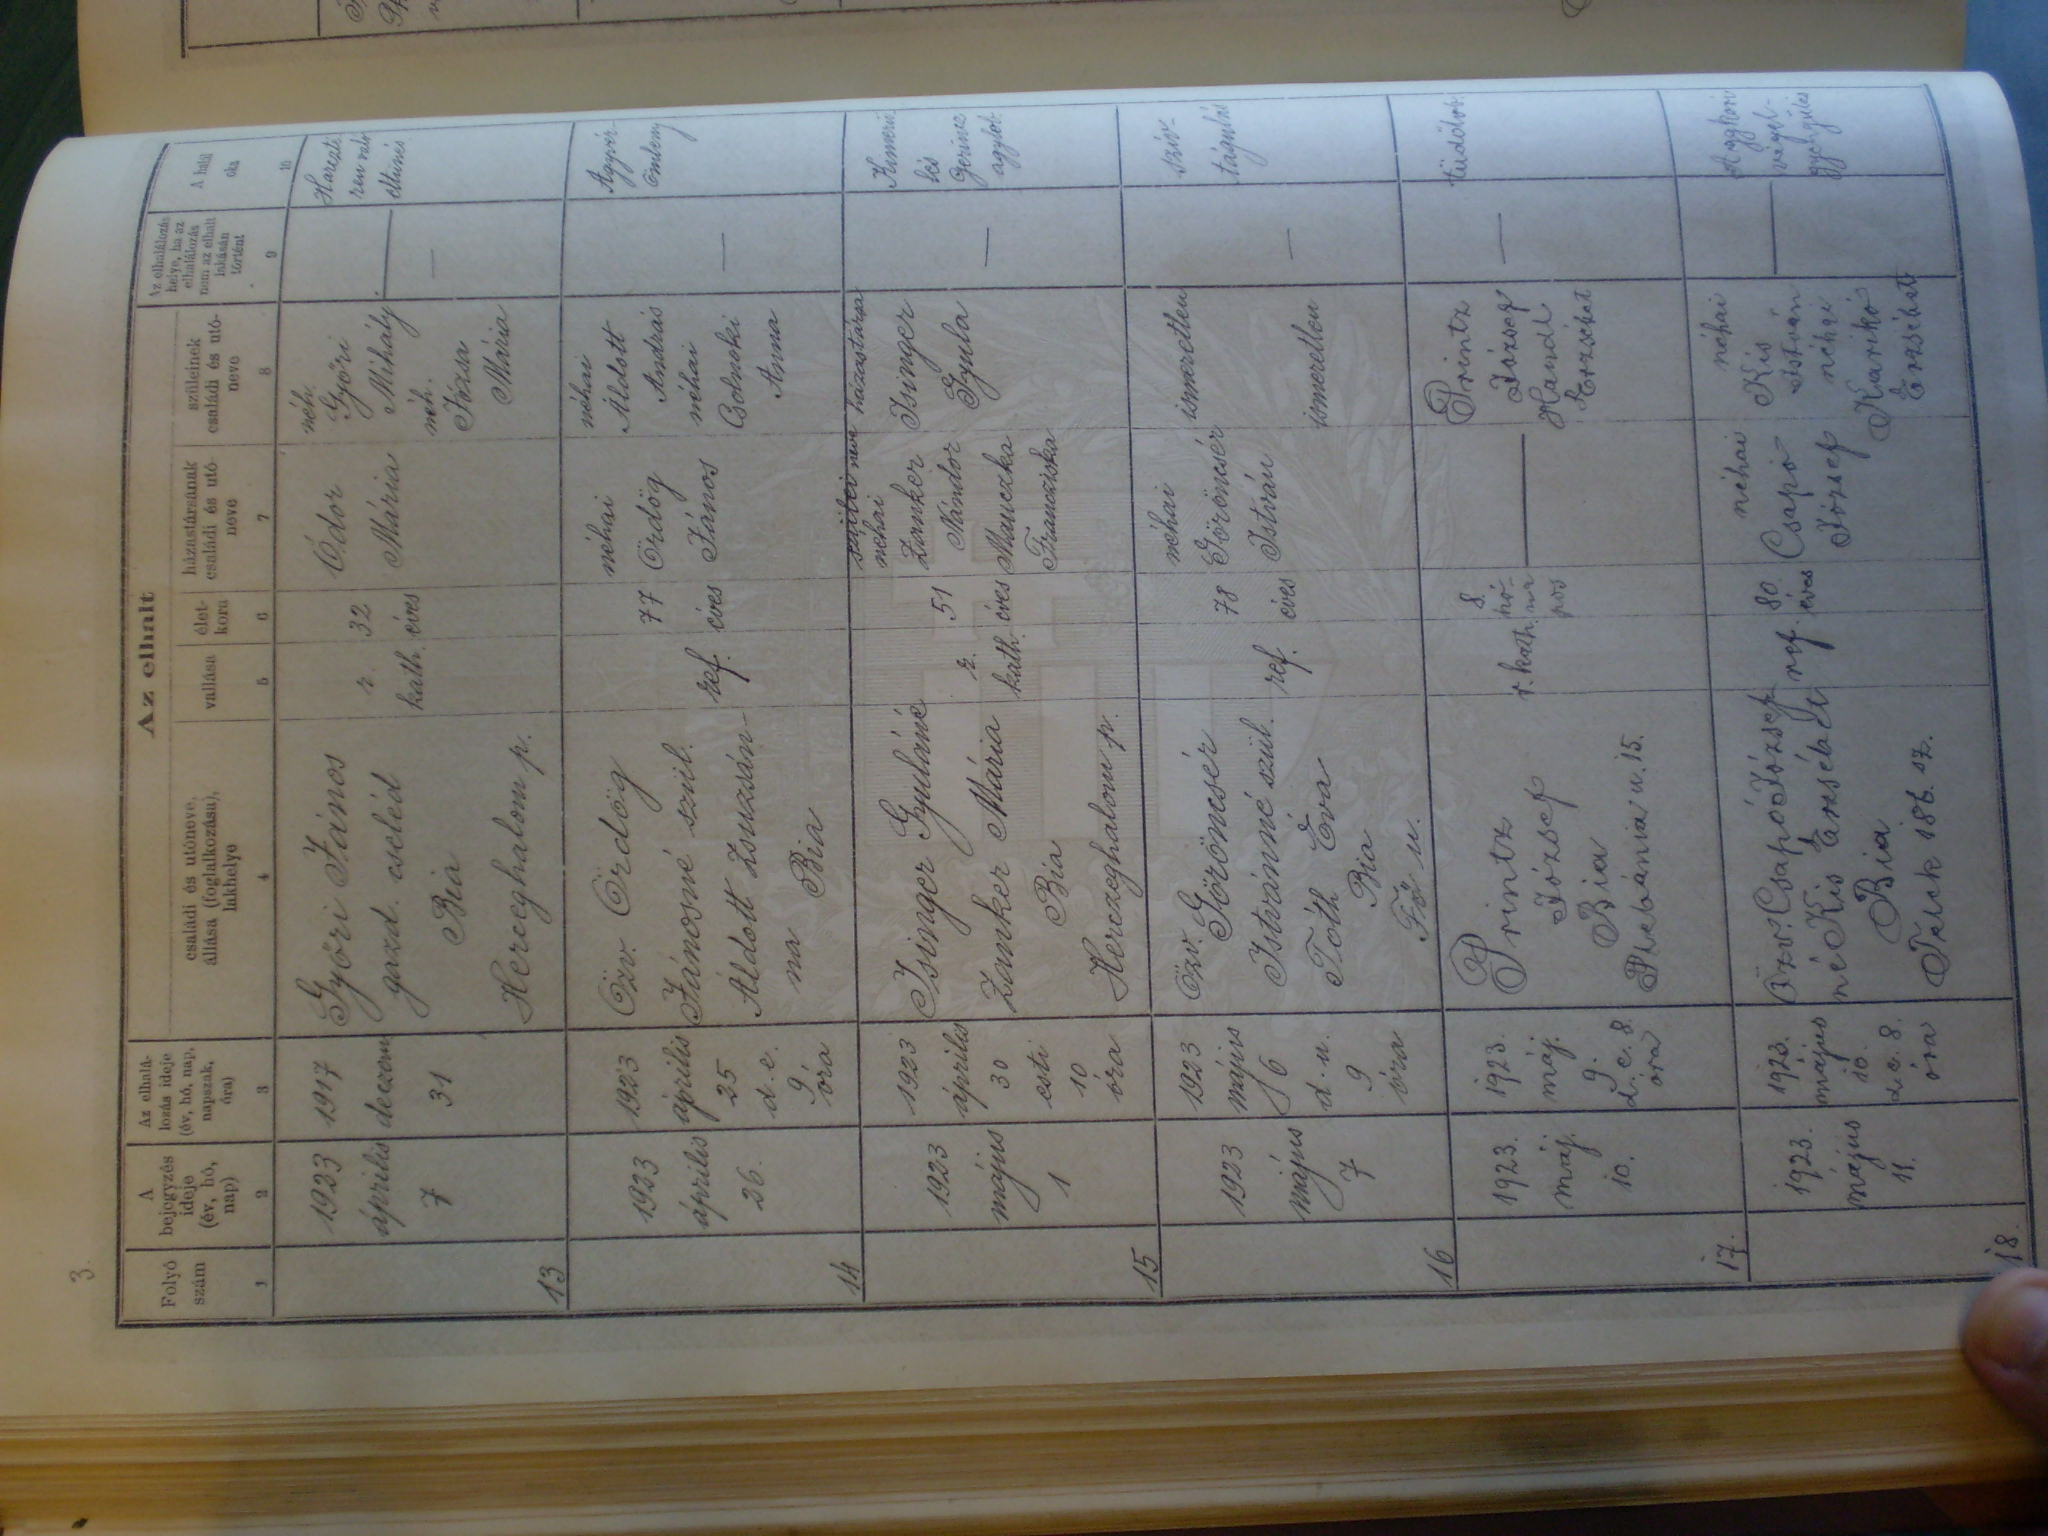 3.
Az elhalt
Folyó
szám
A
bejegyzés
ideje
(év, hó,
nap)
Az elhalá-
lozás ideje
(év, hó, nap,
napszak,
óra)
családi és utóneve,
állása (foglalkozása),
lakhelye
vallása
élet-
kora
házastársának
családi és utó-
neve
szüleinek
családi és utó-
neve
Az elhalálozás
helye, ha az
elhalálozás
nem az elhalt
lakásán
történt
A halál
oka
1
2
3
4
5
6
7
8
9
10
13
1923
április
7
1917
deczem
31
Győri János
gazd. cseléd
Bia
Herceghalom p.
r.
kath.
32
éves
Ódor
Mária
néh.
Győri
Mihály
néh.
Józsa
Mária
—
Harczté-
ren való
eltünés
14
1923
április
26.
1923
április
25
d. e.
9
óra
Özv. Ördög
Jánosné szül.
Áldott Zsuzsán-
na Bia
ref.
77
éves
néhai
Ördög
János
néhai
Áldott
András
néhai
Anna
—
Agyvér-
ömleny
15
1923
május
1
1923
április
30
esti
10
óra
Isinger Gyuláné
Zanker Mária
Bia
Herczeghalom p.
r.
kath.
51
éves
szülei neve
néhai
Zanker
Nándor
Manczka
Francziska
házastársa
Isinger
Gyula
—
Kimerü
lés
Gerincz
agylob
16
1923
május
7
1923
május
6
d. u.
9
óra
Özv.
Göröncsér
Istvánné szül.
Tóth Éva
Bia
Fő u.
ref.
78
éves
néhai
Göröncsér
István
ismeretlen
ismeretlen
—
sziv-
tágulás
17.
1923.
máj.
10.
1923.
máj.
9.
d. e. 8.
óra
Printz
József
Bia
Plebánia u. 15.
r. kath.
8
hó-
na
pos
—
Printz
József
Handl
Erzsébet
—
tüdőlob
18.
1923.
május
11.
1923.
május
10.
d. e. 8.
óra
Özv. Csapó József
né Kis Erzsébet
Bia
Telek 186. sz.
ref.
80.
éves
néhai
Csapó
József
néhai
Kis
István
néhai
Karikó
Erzsébet
—
Aggkóri
végel-
gyengülés